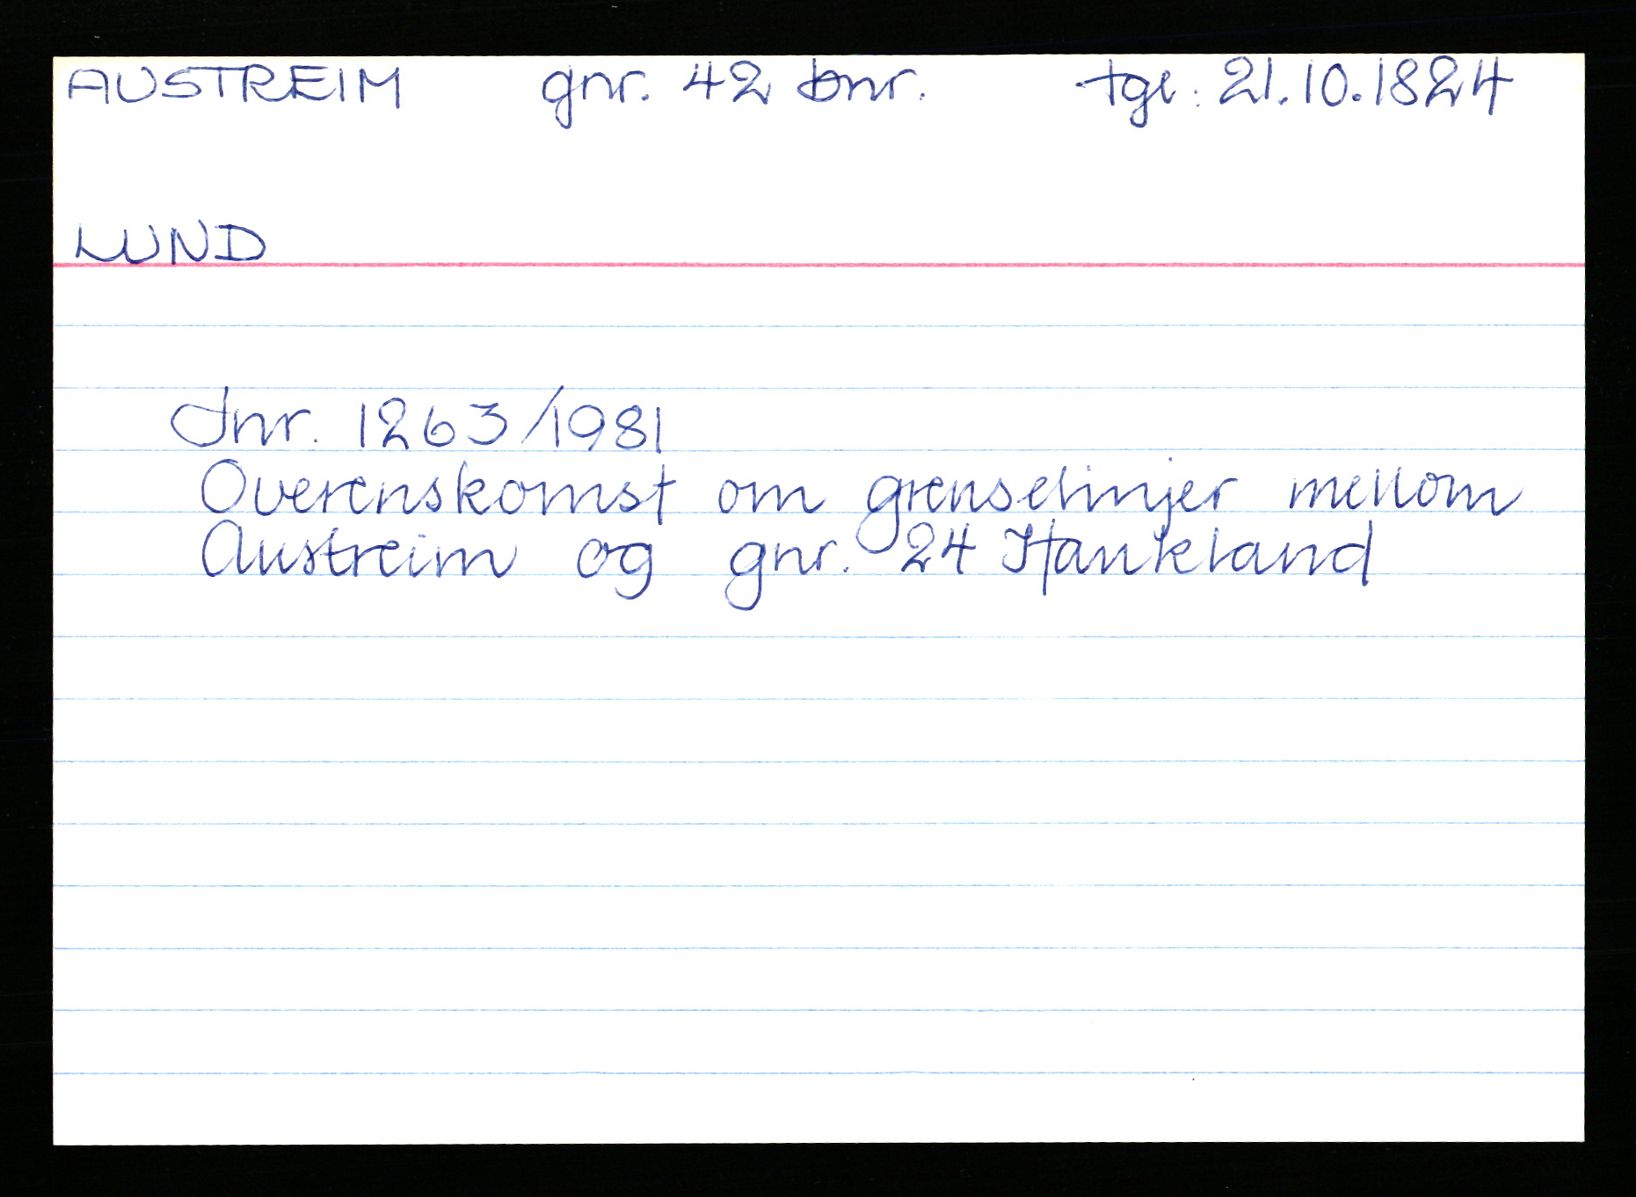 AUSTREIM gnr. 42 bnr. tgl: 21.10.1824
LUND
Jnr. 1263/1981
Overenskomst om grenselinjer mellom
Austreim og gnr. 24 Haukland